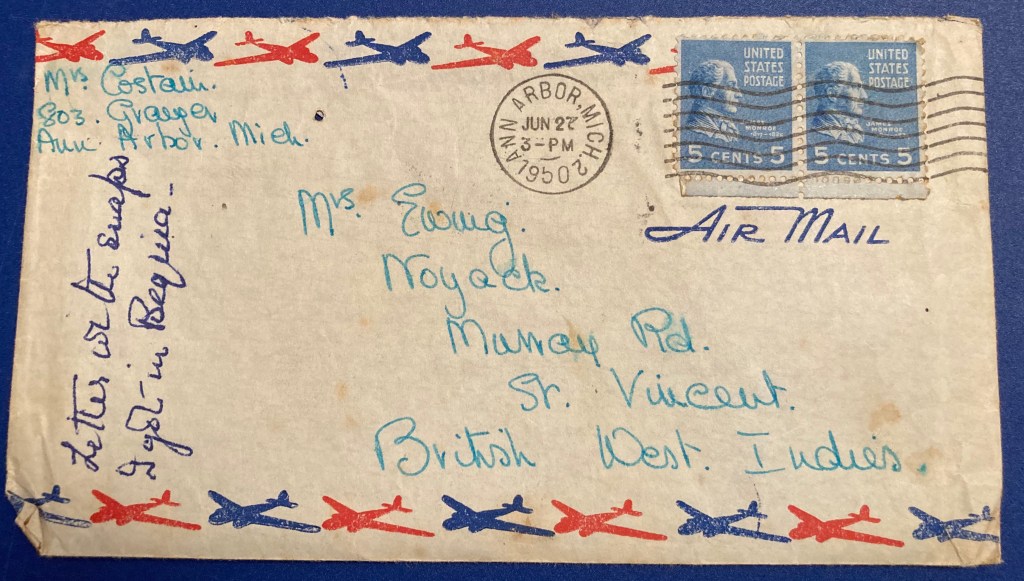 Mrs. Costain.
803. Granger
Ann Arbor. Mich.
ANN ARBOR, MICH. 2
JUN 27
3-PM
1950
UNITED
STATES
POSTAGE
JAMES
MONROE
5 CENTS 5
UNITED
STATES
POSTAGE
JAMES
MONROE
5 CENTS 5
AIR MAIL
Mrs. Ewing.
Noyack.
Murray Rd.
St. Vincent.
British West. Indies.
Letter with the snaps
I got in Bequia.